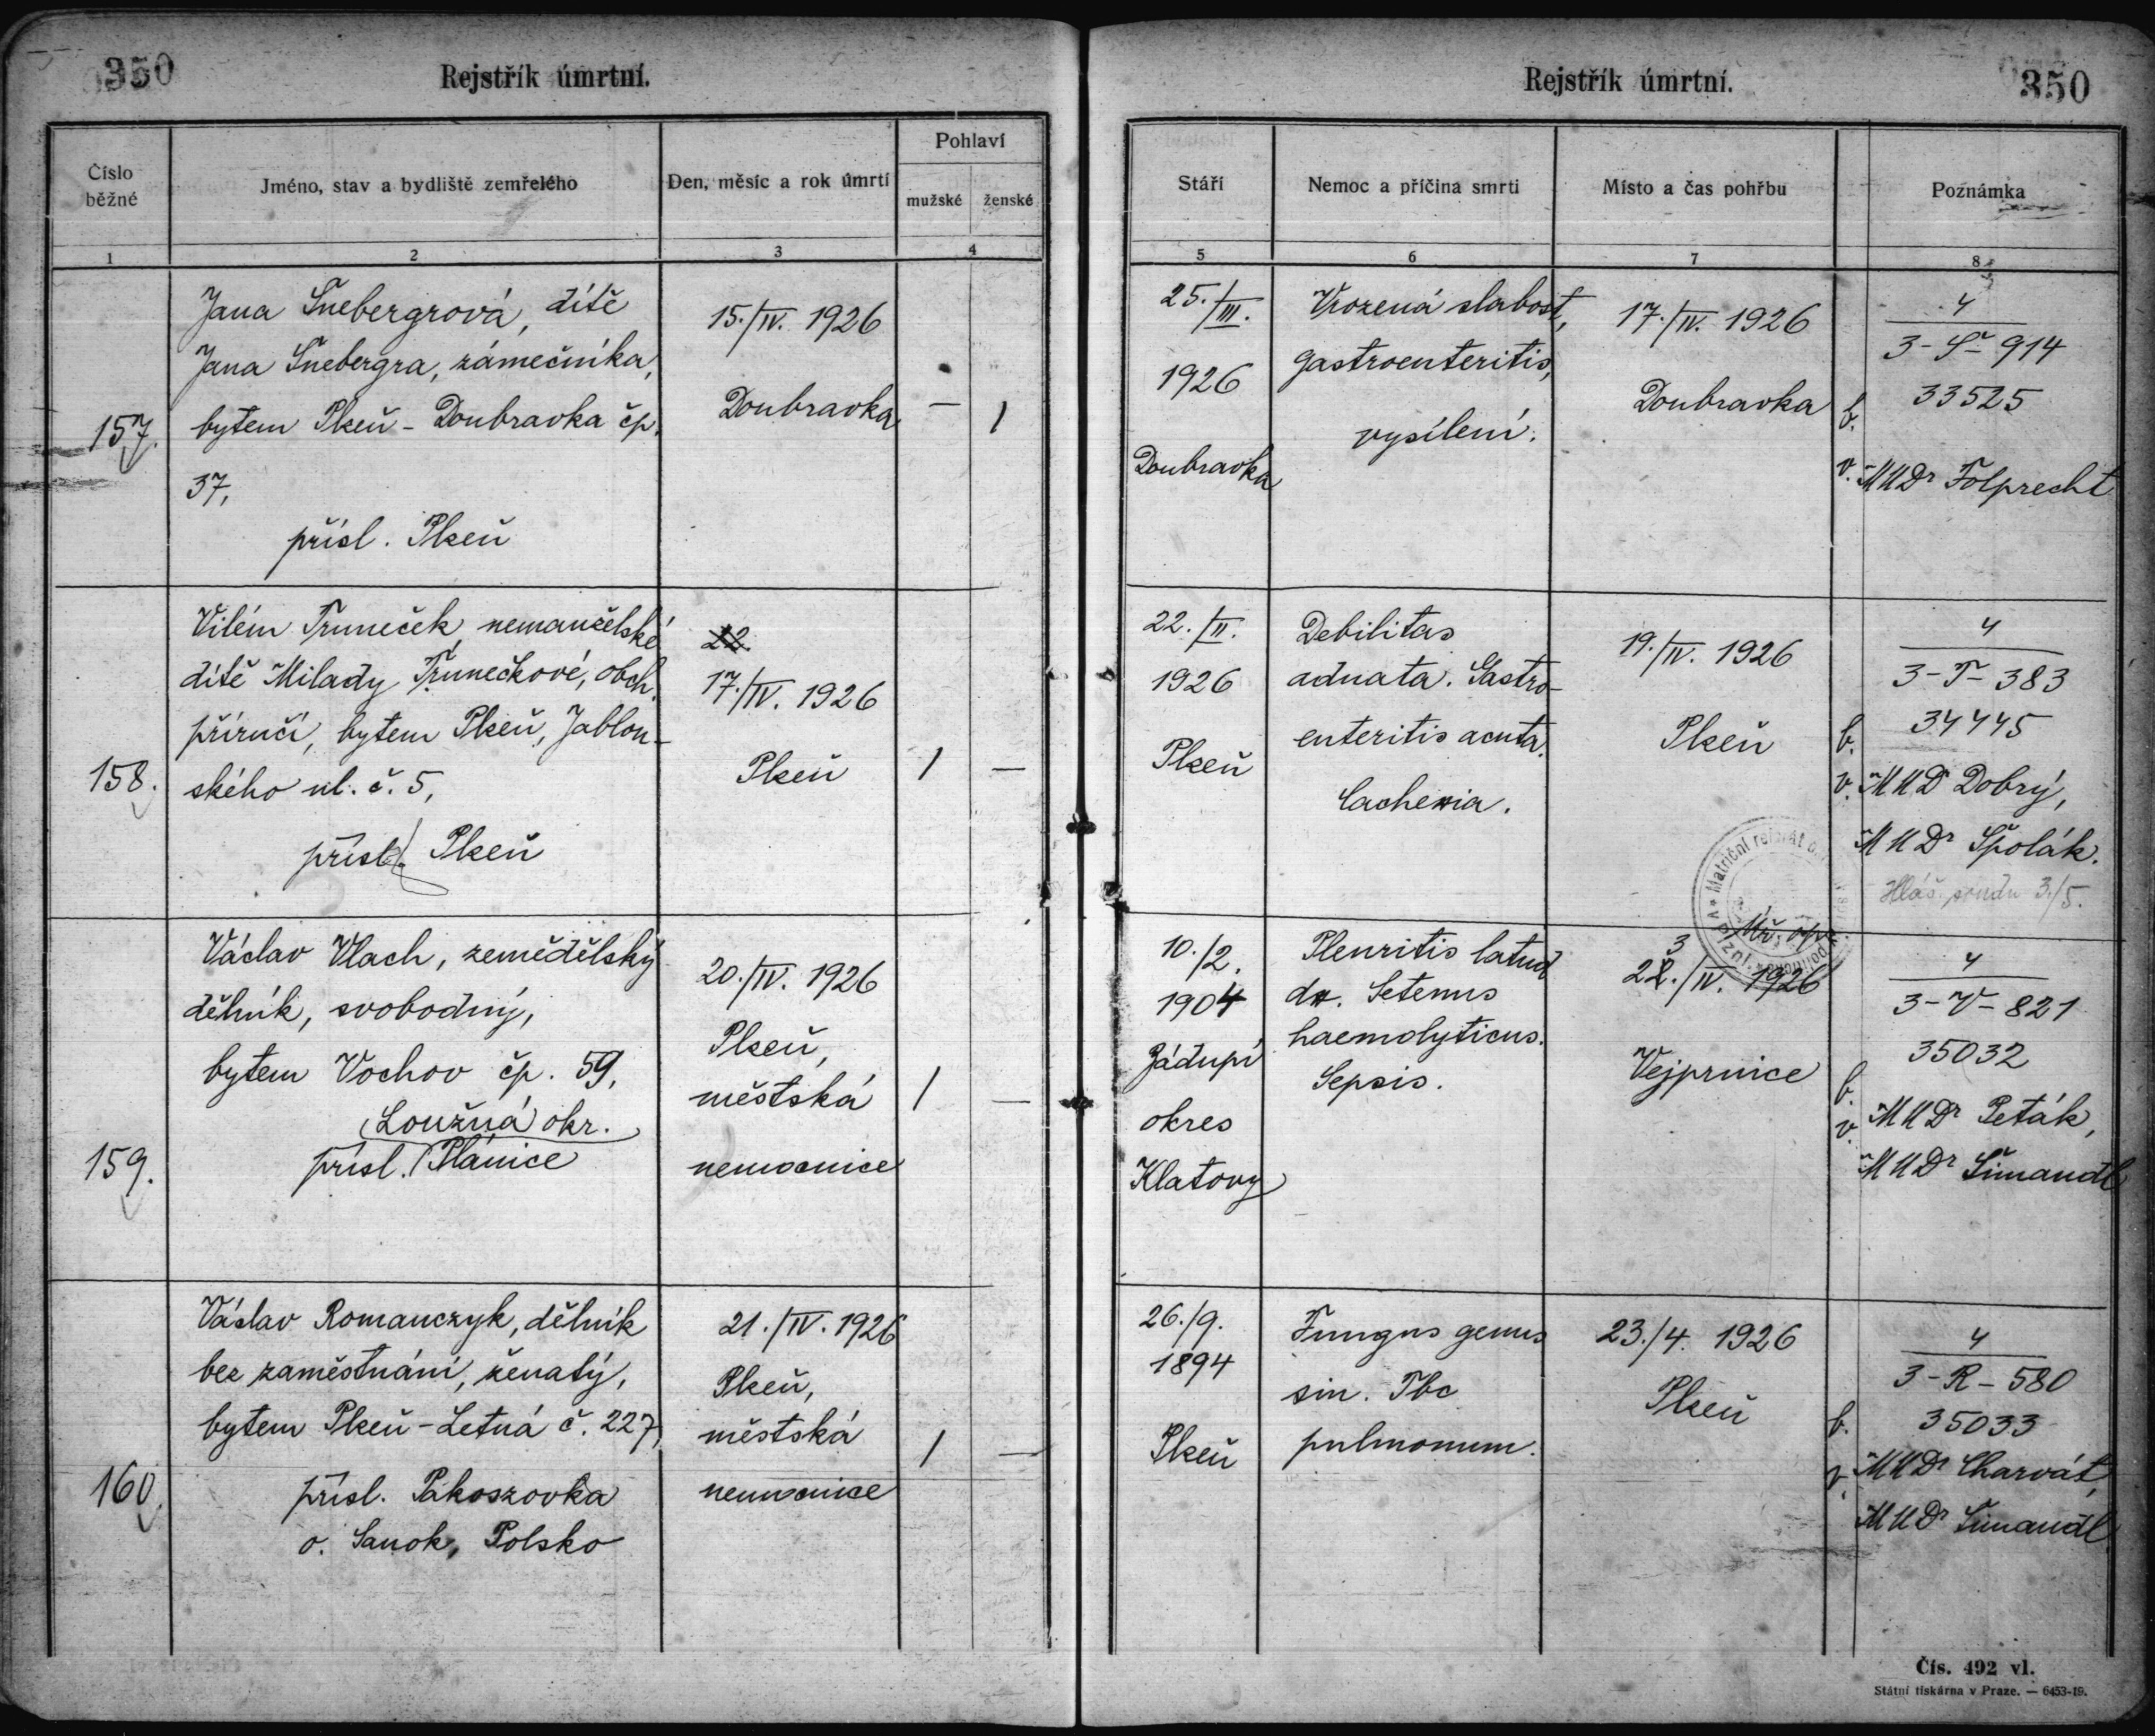 350
Rejstřík úmrtní.
Číslo běžné
Jméno, stav a bydliště zemřelého
Den, měsíc a rok úmrtí
Pohlaví
mužské
ženské
1
2
3
4
157.
Jana Šnebergrová, dítě
Jana Šnebergra, zámečníka,
bytem Plzeň - Doubravka čp.
37,
přísl. Plzeň
15./IV. 1926
Doubravka
—
1
158.
Vilém Truneček, nemanželské
dítě Milady Trunečkové, obch.
příručí, bytem Plzeň, Jablon-
ského ul. č. 5,
přísl. Plzeň
22.
17./IV. 1926
Plzeň
1
—
159.
Václav Vlach, zemědělský
dělník, svobodný,
bytem Vochov čp. 59,
Loužná okr.
přísl. Plánice
20./IV. 1926
Plzeň,
městská
nemocnice
1
—
160.
Václav Romanczyk, dělník
bez zaměstnání, ženatý,
bytem Plzeň - Letná č. 227,
přísl. Pakoszovka
o. Sanok, Polsko
21./IV. 1926
Plzeň,
městská
nemocnice
1
—
Rejstřík úmrtní.
350
Stáří
Nemoc a příčina smrti
Místo a čas pohřbu
Poznámka
5
6
7
8
25./III.
1926
Doubravka
Vrozená slabost,
gastroenteritis,
vysílení.
17./IV. 1926
Doubravka
4
3-Š-914
33525
b.
v. MUDr Folprecht
22./II.
1926
Plzeň
Debilitas
adnata. Gastro-
enteritis acuta.
Cachexia.
19./IV. 1926
Plzeň
4
3-T-383
34445
b.
v. MUDr Dobrý,
MUDr Špolák.
Hláš. soudu 3./5.
10./2.
1904
Zádupí
okres
Klatovy
Pleuritis
dx.
haemolyticus.
Sepsis.
3
22./IV. 1926
Vejprnice
4
3-V-821
35032
b.
v. MUDr Peták,
MUDr Šimandl
26./9.
1894
Plzeň
Fungus genus
sin. Tbc
pulmonum.
23./4. 1926
Plzeň
4
3-R-580
35033
b.
v. MUDr Charvát,
MUDr Šimandl
Čís. 492 vl.
Státní tiskárna v Praze. — 6453-19.